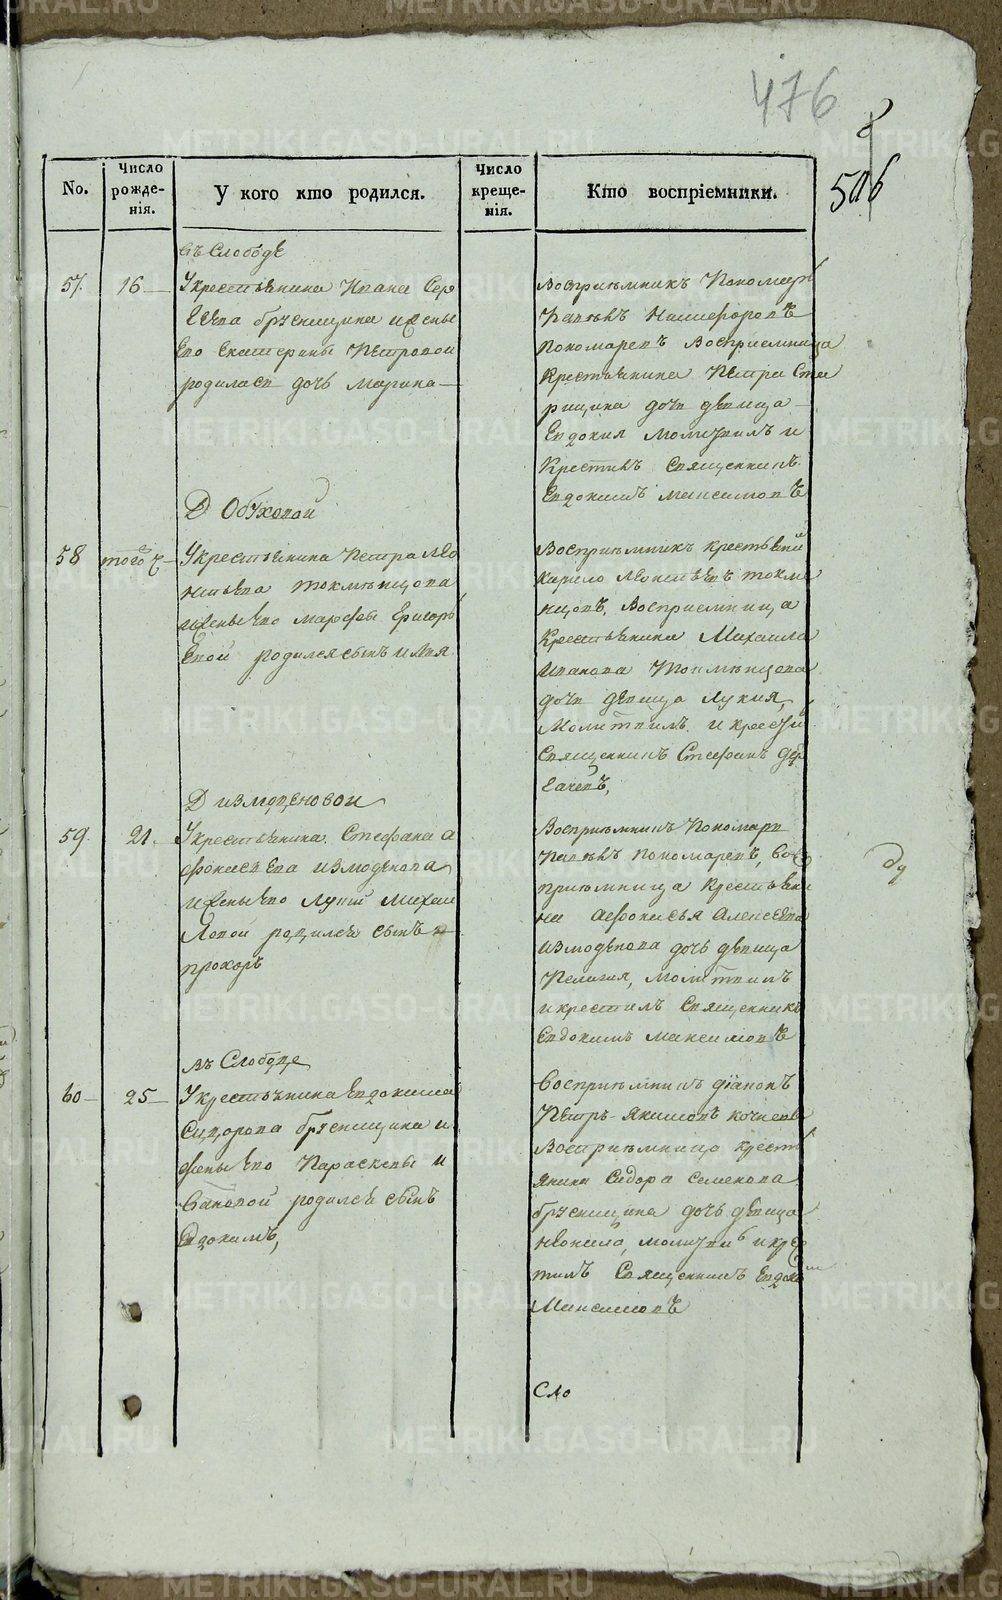 476
506
No.
Число рожде-нія.
У кого кто родился.
Число креще-нія.
Кто воспріемники.
въ Слободе
57. 16
У крестьянина Ивана Сер
геева брусницина и жены
его Екатерины Петровой
родилася дочь Марина
Восприемникъ Пономарь
Павелъ Никифоровъ
Пономаревъ Восприемница
Крестьянина Петра Ста
рицина дочь девица
Евдокия молитвилъ и
Крестилъ Священникъ
Евдокимъ Максимовъ
Д Обуховой
58 того ч
У крестьянина Петра Лео
нтьева токманцова
и жены его марфы Григорь
евой родился сынъ Илья
Восприемникъ крестьяни
Карило Леонтьевъ токма
нцовъ, Восприемница
Крестьянина Михаила
Иванова Токманцова
дочь девица Лукия,
Молитвилъ и крести
Священникъ Стефанъ Дер
гачевъ,
Д измоденовой
59 21.
У крестьянина Стефана а
фонасьева измоденова
и жены его Лукии Михаи
ловой родился сынъ
прохоръ
Восприемникъ Пономарь
Павелъ Пономаревъ, вос
приемница Крестьяни
на Афонасья Алексеева
измоденова дочь девица
Пелагия, молитвилъ
и крестилъ Священникъ
Евдокимъ Максимовъ
въ Слободе
60 25
У крестьянина Евдокима
Сидорова брусницина и
жены его Параскевы и
вановой родился сынъ
Евдокимъ,
Восприемникъ диаконъ
Петръ Якимовъ кочнев
Восприемница кресть
янина Сидора Семенова
брусницина дочь девица
Неонила, молитвилъ и крес
тилъ Священникъ Евдоким
Максимовъ
Сло
METRIKI.GASO-URAL.RU